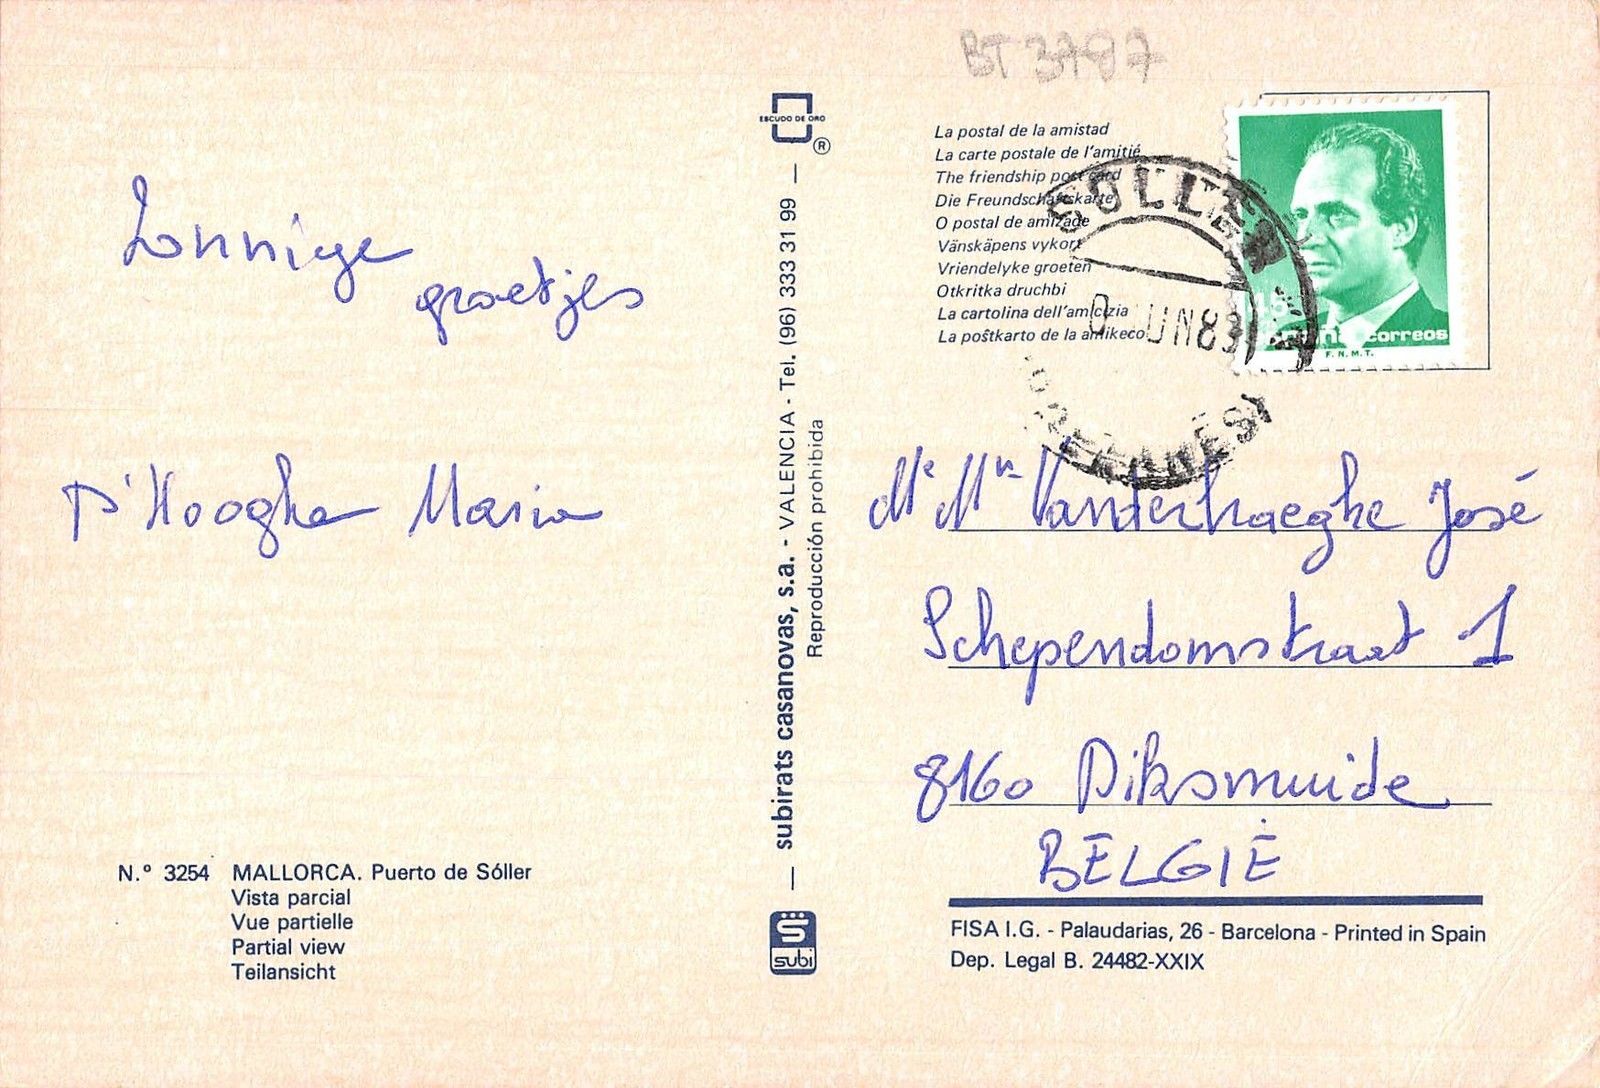 BT 3787
ESCUDO DE ORO
®
La postal de la amistad
La carte postale de l'amitié
The friendship post card
Die Freundschaftskarte
O postal de amizade
Vänskäpens vykort
Vriendelyke groeten
Otkritka druchbi
La cartolina dell'amicizia
La poŝtkarto de la amikeco
SOLLER
UN 89
correos
F.N.M.T.
Zonnige
groetjes
D'Hooghe Maria
subirats casanovas, s.a. - VALENCIA - Tel. (96) 333 31 99
Reproducción prohibida
subi
Mr Mvr Vanderhaeghe José
Schependomstraat 1
8160 Diksmuide
BELGIË
N.º 3254 MALLORCA. Puerto de Sóller
Vista parcial
Vue partielle
Partial view
Teilansicht
FISA I.G. - Palaudarias, 26 - Barcelona - Printed in Spain
Dep. Legal B. 24482-XXIX